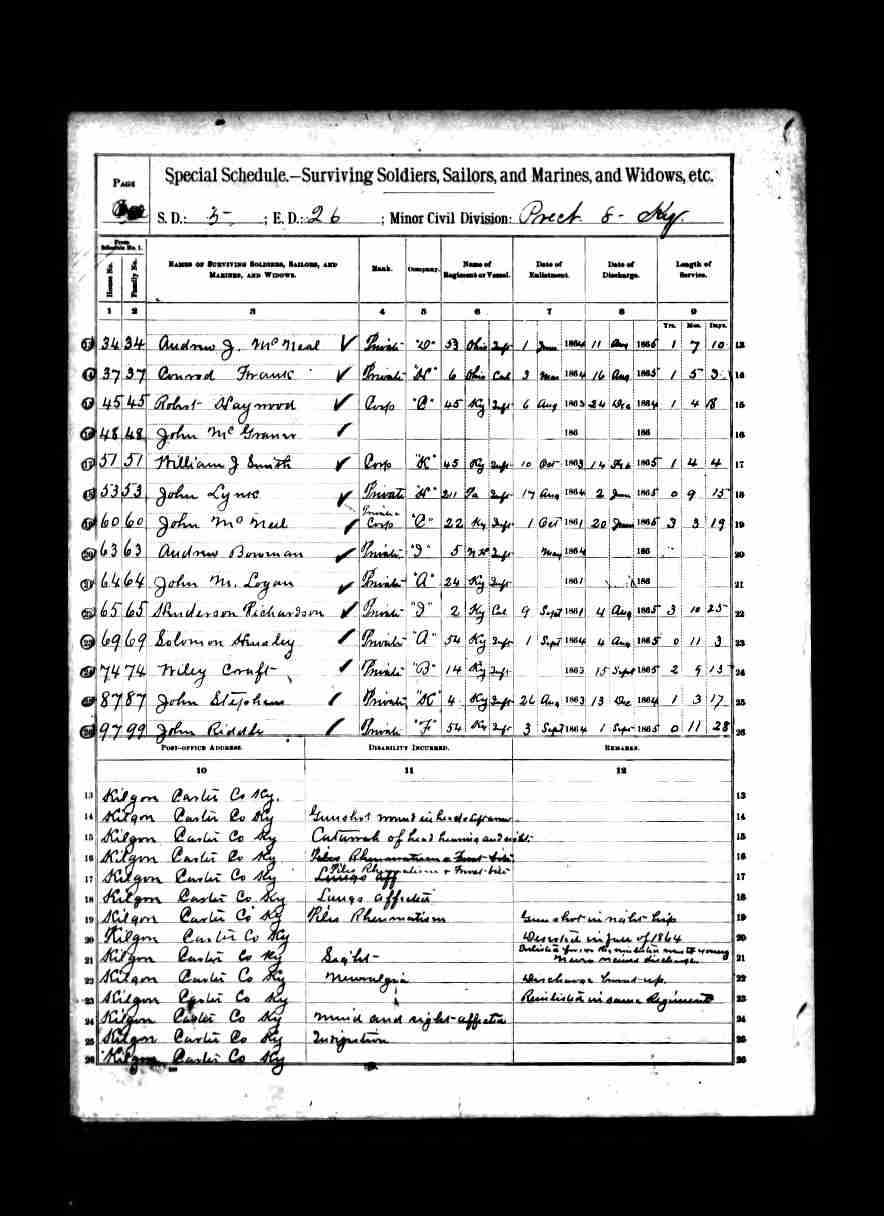 PAGE
Special Schedule.—Surviving Soldiers, Sailors, and Marines, and Widows, etc.
S. D.: 5 ; E. D.: 26 ; Minor Civil Division: Prect 8 - Ky.
From Schedule No. 1.
House No. Family No. NAMES OF SURVIVING SOLDIERS, SAILORS, AND MARINES, AND WIDOWS. Rank. Company. Name of Regiment or Vessel. Date of Enlistment. Date of Discharge. Length of Service.
1 2 3 4 5 6 7 8 9
Yrs. Mos. Days.
13 34 34 Andrew J. McNeal Private "D" 53 Ohio Inft 1 1864 11 Aug 1865 1 7 10 13
14 37 37 Conrod Frank Private "H" 6 Ohio Cal 3 Mar 1864 16 Aug 1865 1 5 3 14
15 45 45 Robst Haywood Corp "C" 45 Ky Inft 6 Aug 1863 24 Dec 1864 1 4 18 15
16 48 48 John McGraner 186 186 16
17 51 51 William J Smith Corp "K" 45 Ky Inft 10 Oct 1863 14 Feb 1865 1 4 4 17
18 53 53 John Lynk Private "H" 211 Pa Inft 17 Aug 1864 2 June 1865 0 9 15 18
19 60 60 John McNeal Private Corp "C" 22 Ky Inft 1 Oct 1861 20 1865 3 3 19 19
20 63 63 Andrew Bowman Private "I" 5 Inft May 1864 186 20
21 64 64 John M. Logan Private "A" 24 Ky Inft 1861 186 21
22 65 65 Henderson Richardson Private "I" 2 Ky Cal 9 Sept 1861 4 Aug 1865 3 10 25 22
23 69 69 Solomon Hensley Private "A" 54 Ky Inft 1 Sept 1864 4 Aug 1865 0 11 3 23
24 74 74 Wiley Craft Private "B" 14 Ky Inft 1863 15 Sept 1865 2 9 13 24
25 87 87 John Stephens Private "K" 4 Ky Inft 26 Aug 1863 13 Dec 1864 1 3 17 25
26 97 99 John Riddle Private "F" 54 Ky Inft 3 Sept 1864 1 Sept 1865 0 11 28 26
POST-OFFICE ADDRESS. DISABILITY INCURRED. REMARKS.
10 11 12
13 Kilgon Carter Co Ky. 13
14 Kilgon Carter Co Ky Gunshot wound in head 14
15 Kilgon Carter Co Ky Catarrah of head hearing and sight 15
16 Kilgon Carter Co Ky Piles Rheumatism & Frost-bite 16
Piles Rheumatism & Frost-bite
17 Kilgon Carter Co Ky Lungs aff 17
18 Kilgon Carter Co Ky Lungs affected 18
19 Kilgon Carter Co Ky Piles Rheumatism Gunshot in right hip 19
20 Kilgon Carter Co Ky Deserted in fall of 1864 20
21 Kilgon Carter Co Ky Sight- never discharge 21
22 Kilgon Carter Co Ky Neuralgia Discharge burnt-up. 22
23 Kilgon Carter Co Ky Reinlisted in same Regiment 23
24 Kilgon Carter Co Ky mind and sight-affected 24
25 Kilgon Carter Co Ky Indigestion 25
26 Kilgon Carter Co Ky 26